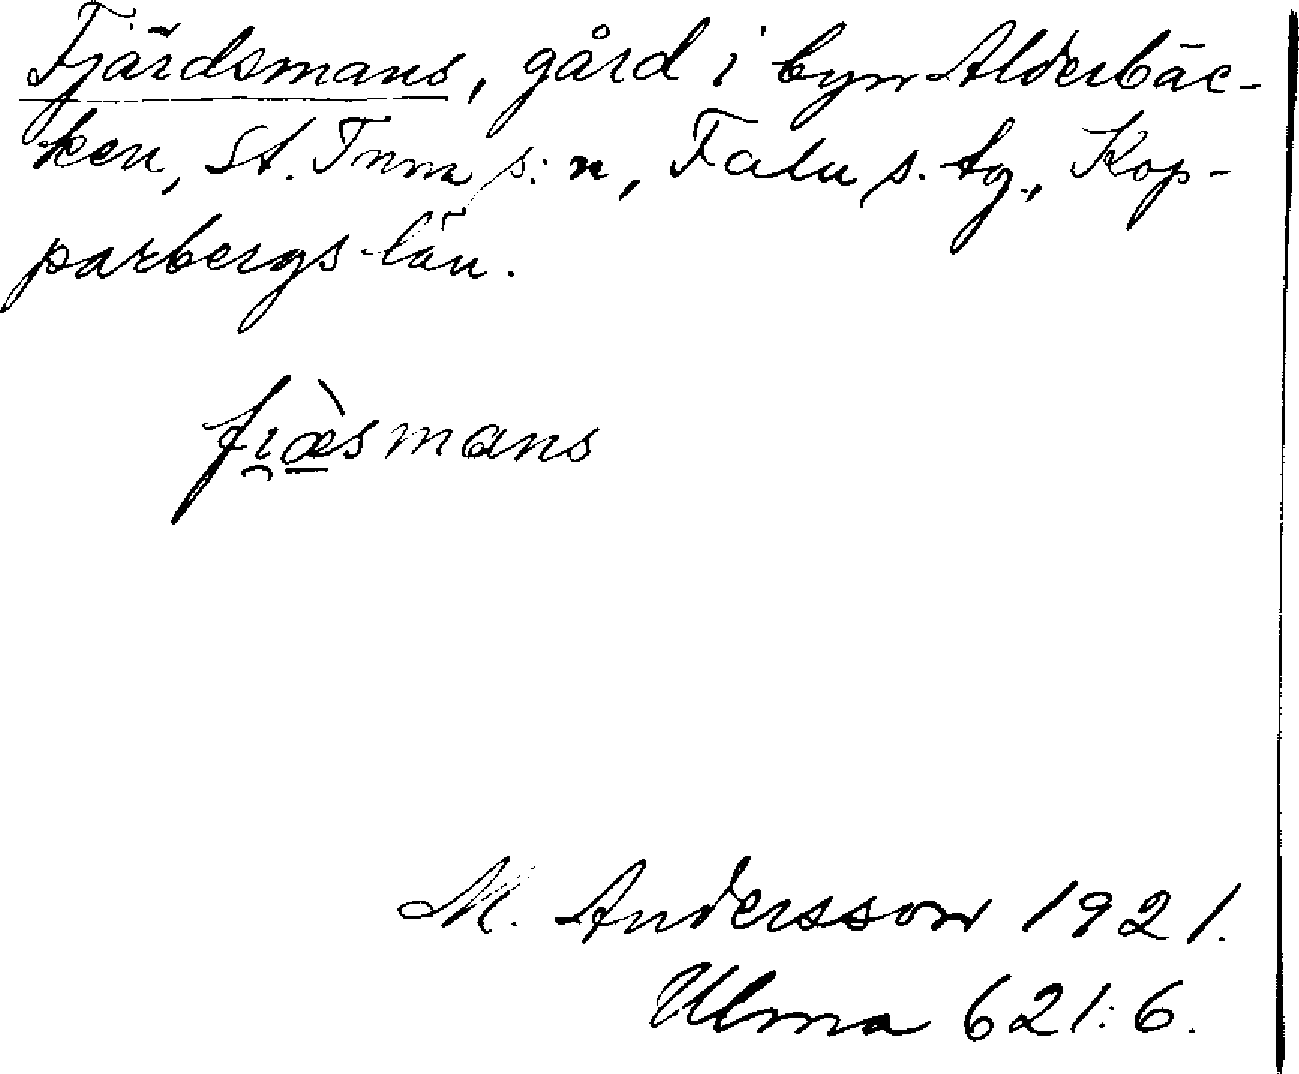 Fjärdsmans, gård i byn Alderbäc-
ken, St. Tuna s:n, Falu s. tg., Kop-
parbergs län.
fi̯æ̠̀smans
M. Andersson 1921.
Ulma 621:6.